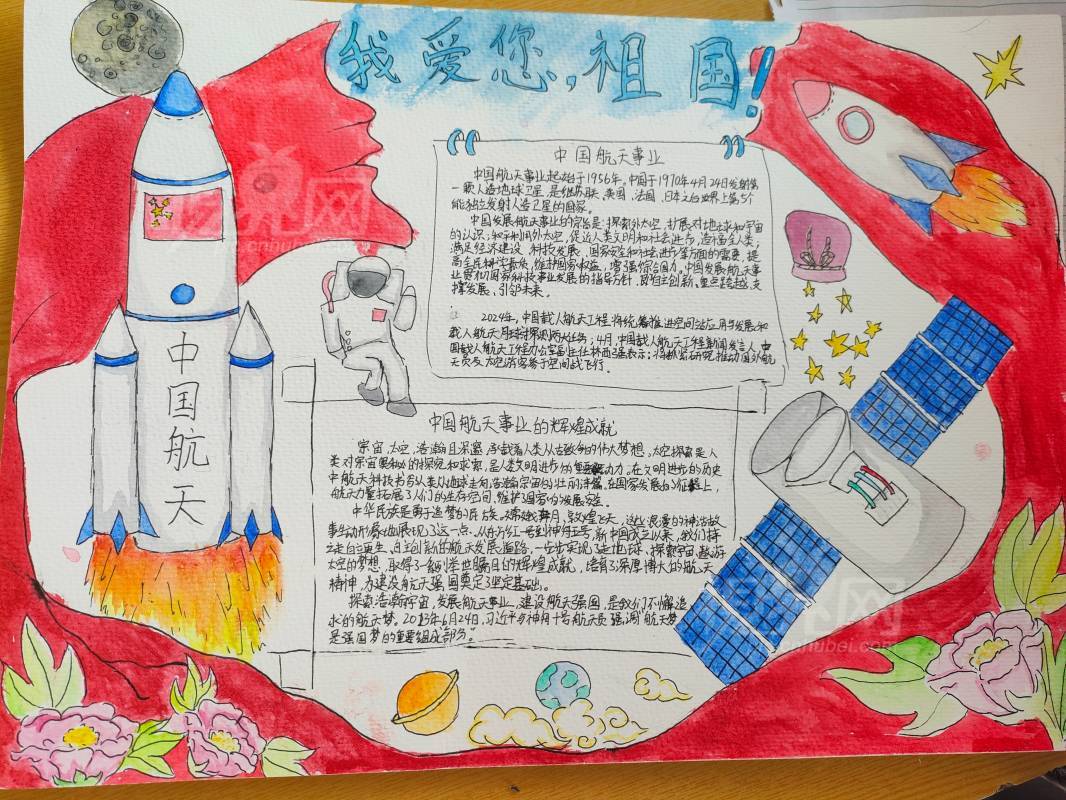 我爱您,祖国!
中国航天事业
中国航天事业起始于1956年。中国于1970年4月24日发射第
一颗人造地球卫星,是继苏联、美国、法国、日本之后世界上第5个
能独立发射人造卫星的国家。
中国发展航天事业的宗旨是:探索外太空,扩展对地球和宇宙
的认识;和平利用外太空,促进人类文明和社会进步,造福全人类;
满足经济建设、科技发展、国家安全和社会进步等方面的需要,提
高全民科学素质,维护国家权益,增强综合国力。中国发展航天事
业贯彻国家科技事业发展的指导方针,即自主创新、重点跨越、支
撑发展、引领未来。
2024年,中国载人航天工程将统筹推进空间站应用与发展和
载人航天月球探测两大任务;4月,中国载人航天工程新闻发言人、中
国载人航天工程办公室副主任林西强表示:将抓紧研究推动国外航
天员及太空游客参于空间站飞行。
中国航天事业的辉煌成就
宇宙,太空,浩瀚且深邃,承载着人类从古致今的伟大梦想。太空探索是人
类对宇宙奥秘的探究和求索,是人类文明进步的重要动力。在文明进步的历史
中航天科技书写人类从地球走向浩瀚宇宙的壮丽诗篇。在国家发展的征程上,
航天力量拓展了人们的生存空间,维护了国家的发展安全。
中华民族是勇于追梦的民族。嫦娥奔月,敦煌飞天,这些浪漫的神话故
事生动形象地展现了这一点。从东方红一号到神舟五号,新中国成立以来,我们持
走自立更生、自主创新的航天发展道路,一步步实现了走地球、探索宇宙、遨游
太空的梦想,取得了一系列举世瞩目的辉煌成就,培育了深厚博大的航天
精神,为建设航天强国奠定了坚定基础。
探索浩瀚宇宙,发展航天事业,建设航天强国,是我们不懈追
求的航天梦。2013年6月24日,习近平与神舟十号航天员强调"航天梦
是强国梦的重要组成部分"
中国航天